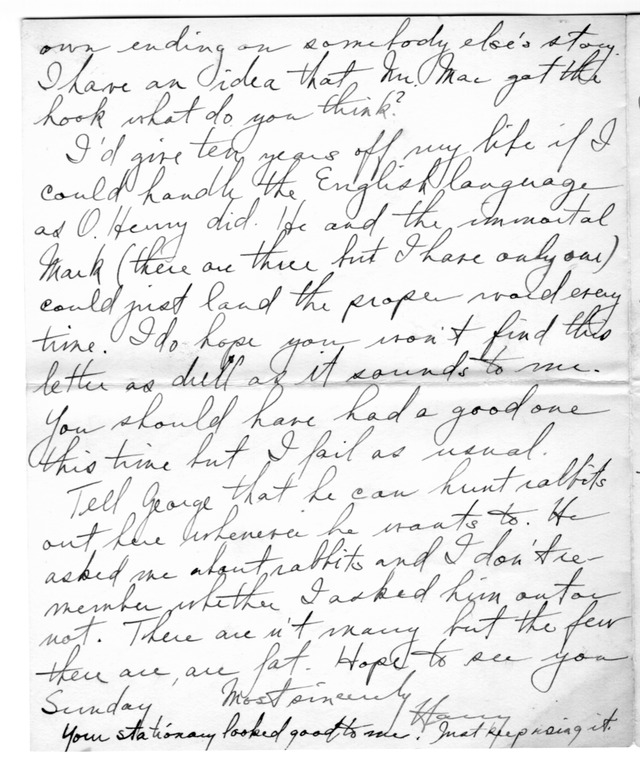 own ending on somebody else's story.
I have an idea that Mr. Mac got the
hook what do you think?
I'd give ten years off my life if I
could handle the English language
as O. Henry did. He and the immortal
Mark (there are three but I have only one)
could just land the proper word every
time. I do hope you won't find this
letter as dull as it sounds to me.
You should have had a good one
this time but I fail as usual.
Tell George that he can hunt rabbits
out here whenever he wants to. He
asked me about rabbits and I don't re-
member whether I asked him out or
not. There are n't many but the few
there are, are fat. Hope to see you
Sunday Most sincerely
Harry
Your stationary looked good to me. Just keep using it.